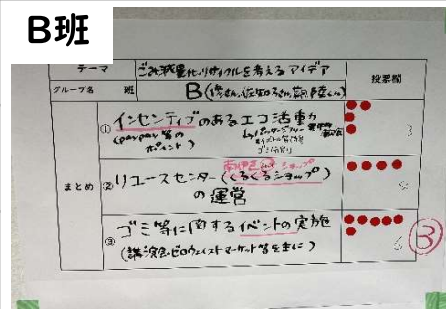 B班
テーマ ごみ減量化、リサイクルを考えるアイデア
グループ名 班 B
投票欄
まとめ
① インセンティブのあるエコ活動
(paypay等の
ポイント)
3
② リユースセンター(くるくるショップ)
の運営
4
③ ゴミ等に関するイベントの実施
(講演会、ゼロウェイストマーケット等を主に)
6
B